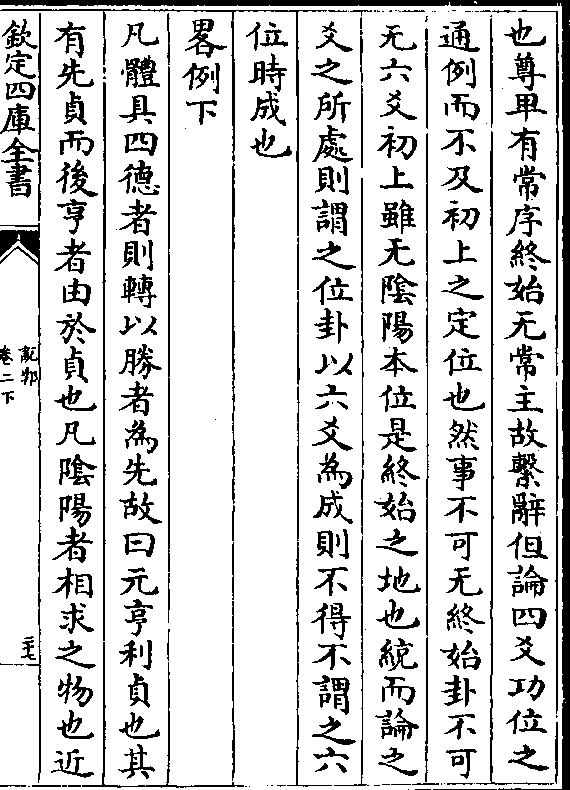 也尊卑有常序終始无常主故繫辭但論四爻功位之
通例而不及初上之定位也然事不可无終始卦不可
无六爻初上雖无隂陽本位是終始之地也統而論之
爻之所處則謂之位卦以六爻為成則不得不謂之六
位時成也
畧例下
凡體具四德者則轉以勝者為先故曰元亨利貞也其
有先貞而後亨者由於貞也凡隂陽者相求之物也近
欽定四庫全書
說郛
卷二下